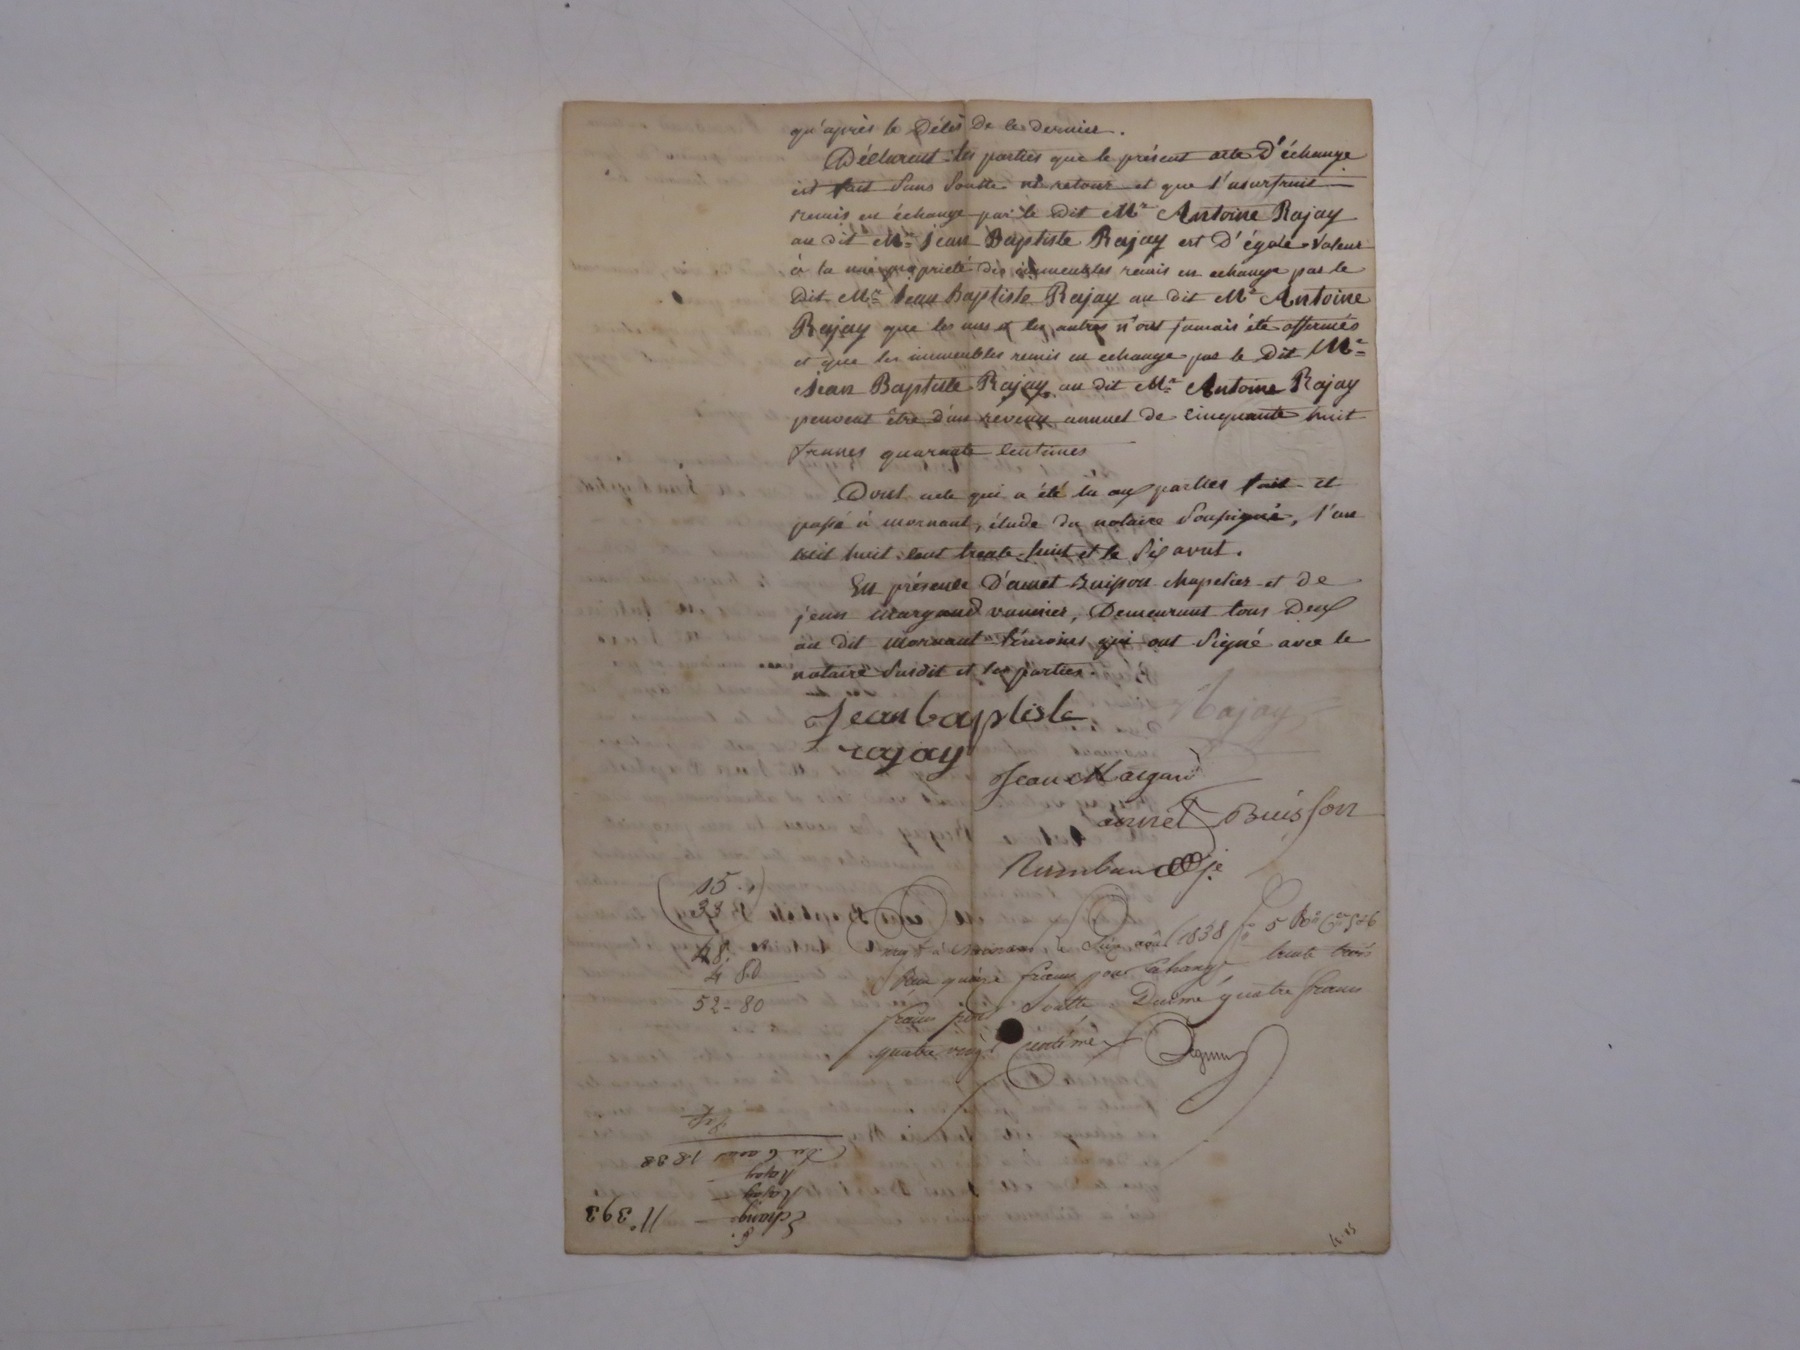 qu'après le Décès de ce dernier.
Déclarent les parties que le présent acte D'échange
est fait Sans Soulte ni retour et que l'usurfruit
remis en échange par le dit Mr. Antoine Rajay
au dit Mr. Jean Baptiste Rajay est D'égale Valeur
à la nue propriété des immeubles remis en echange par le
Dit Mr. Jean Baptiste Rajay au dit Mr. Antoine
Rajay que les uns et les autres n'ont jamais été affermés
et que les immeubles remis en echange par le Dit Mr.
Jean Baptiste Rajay au dit Mr. Antoine Rajay
peuvent être d'un revenu annuel de Cinquante huit
francs quarante Centimes
Dont acte qui a été lu aux parties fait et
passé à mornant, étude du notaire Soussigné, l'an
mil huit Cent trente huit et le Six août.
En présence D'amet Buisson chapelier et de
jean Margand vannier, Demeurant tous Deux
au dit mornant témoins qui ont Signé avec le
notaire Susdit et les parties.
Jean baptiste Rajay
rajay
Jean Margand
amet Buisson
15
33
48
4 80
52=80
à Mornant le août 1838 fo 5 Ro
quinze francs pour Echange trente trois
francs pour Soulte Decime quatre francs
quatre vingt centimes
N° 393
Echange
Rajay
Rajay
Du 6 aout 1838